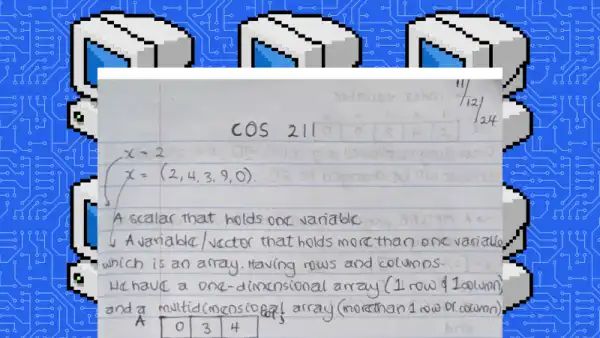 11/12/24
COS 211
x = 2
x = (2,4,3,9,0).
A scalar that holds one variable
A variable/vector that holds more than one variable
which is an array. Having rows and columns.
We have a one-dimensional array (1 row & 1 column)
and a multidimensional array (more than 1 row or column)
A
0 3 4